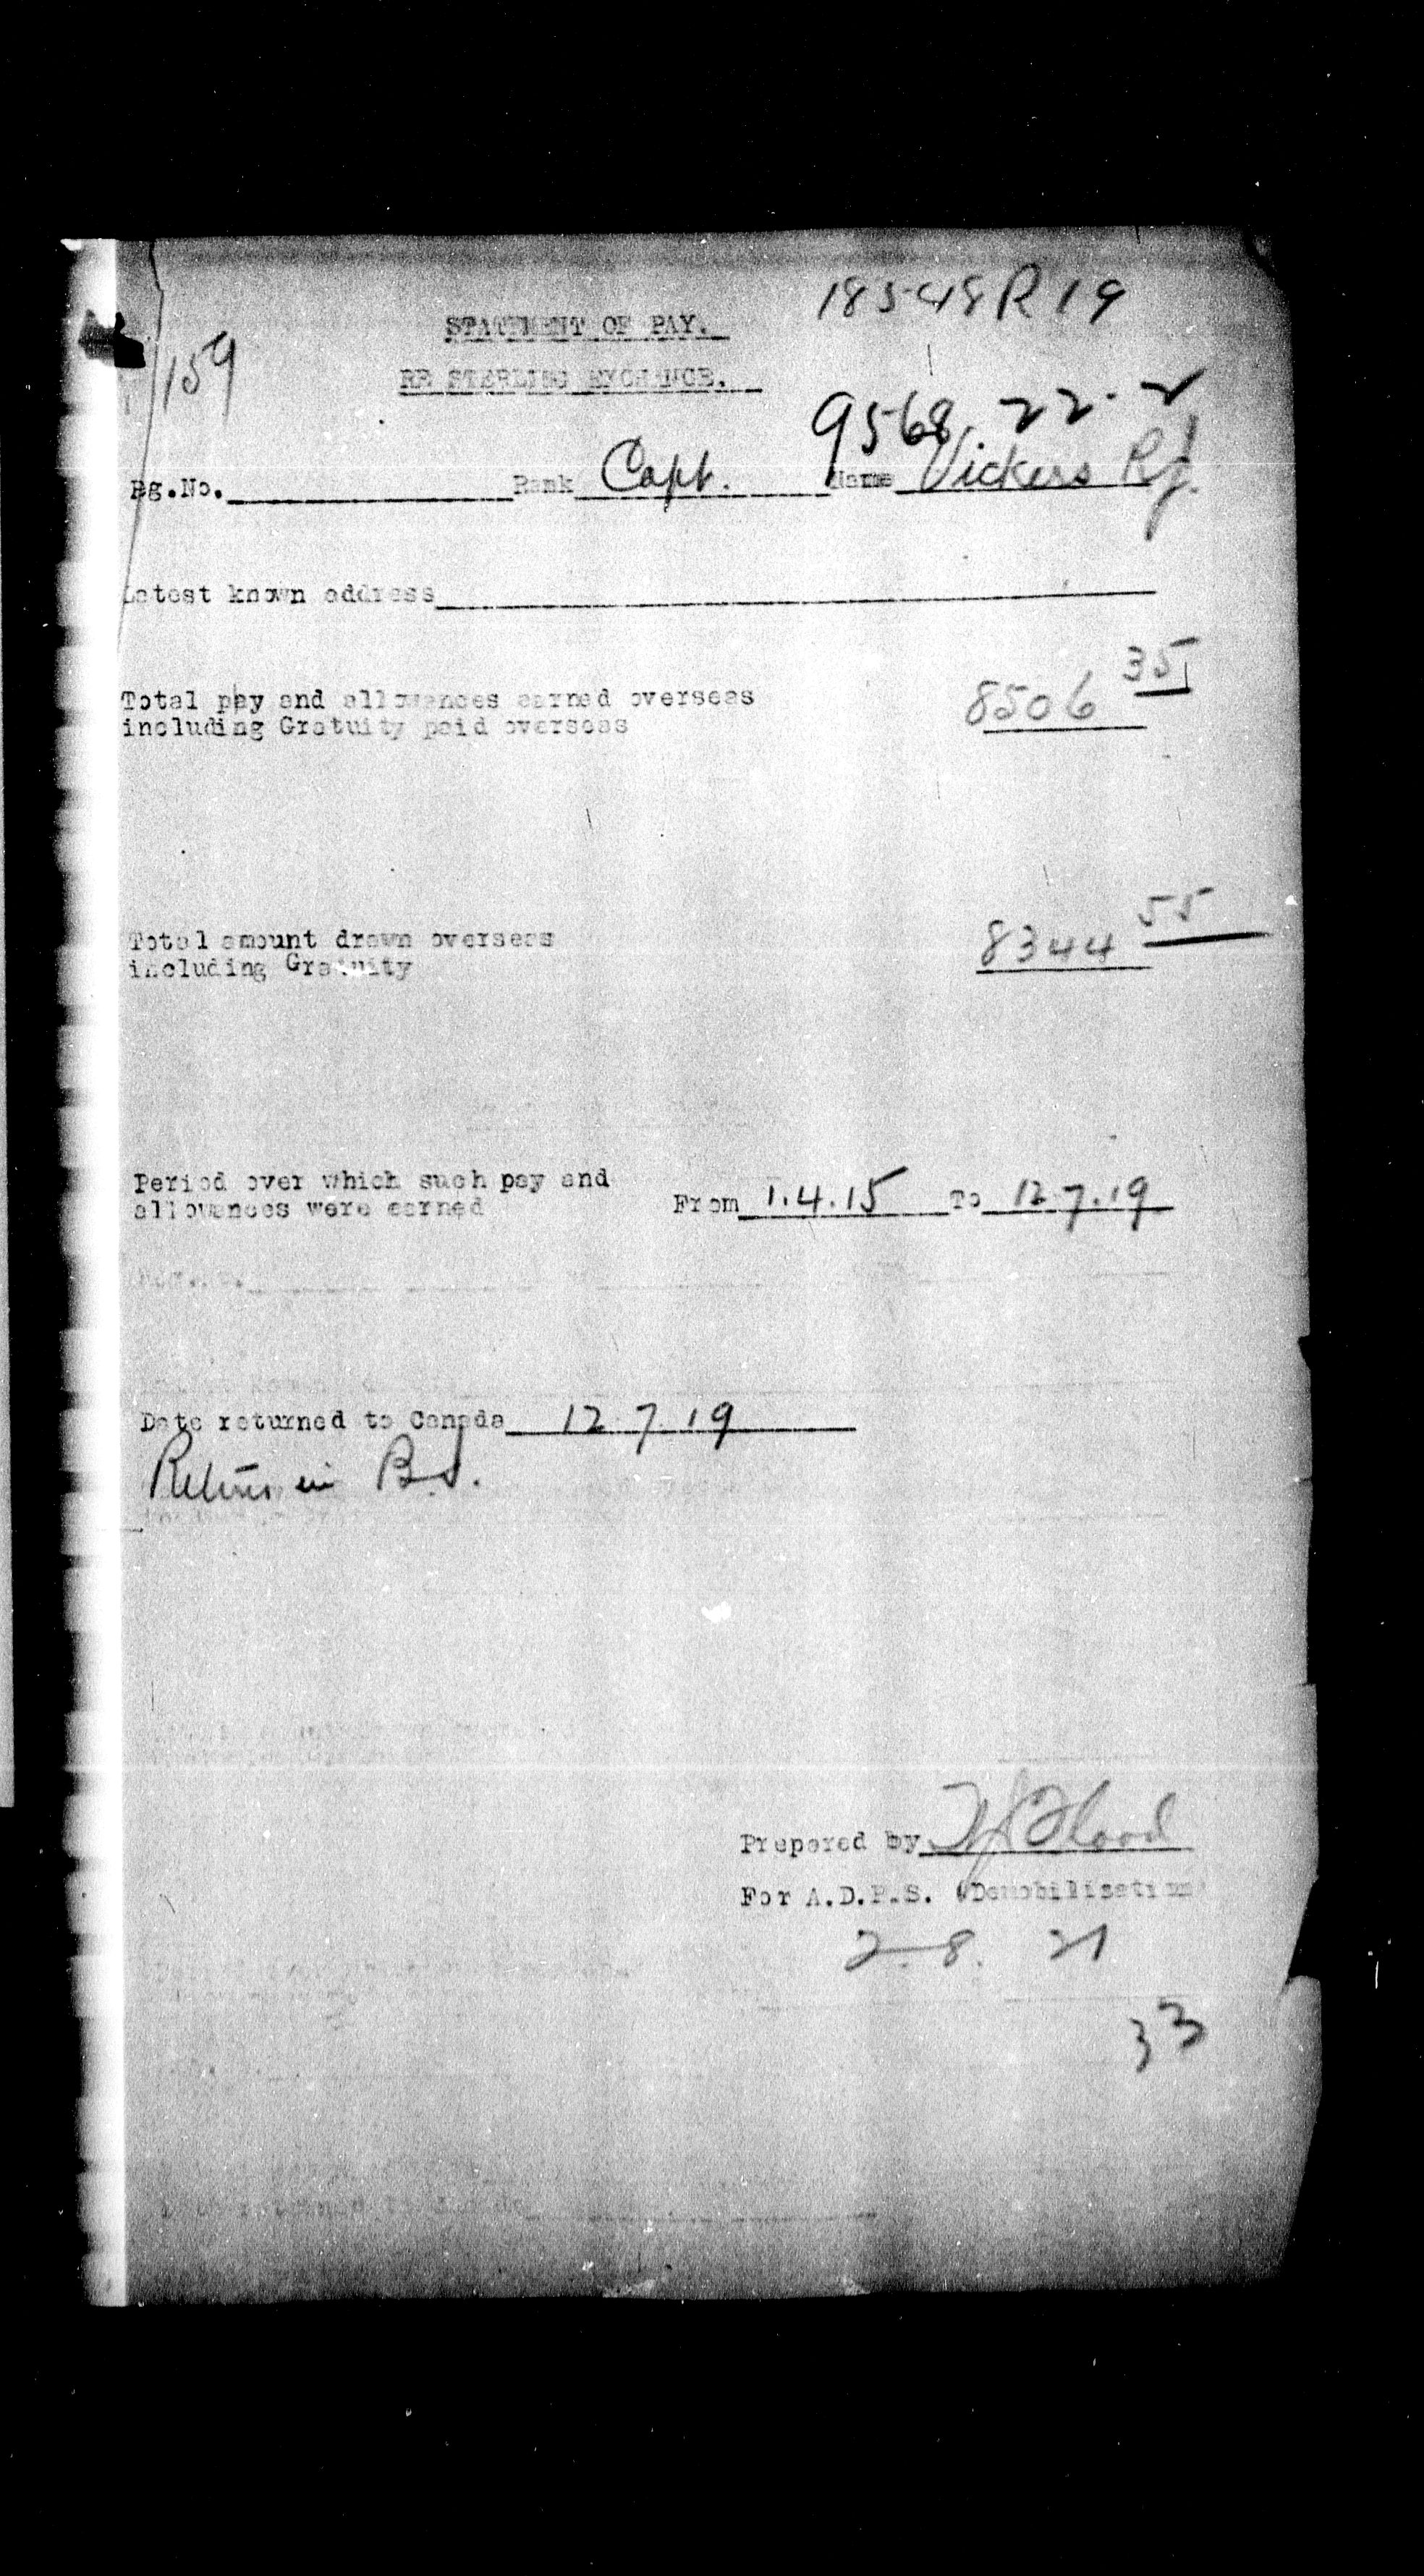 18548 R 19
159
STATEMENT OF PAY.
RE STERLING EXCHANGE.
9568. 22. 2
Rg.No. Rank Capt. Name Vickers R.J.
Latest known address
Total pay and allowances earned overseas 8506 35
including Gratuity paid overseas
Total amount drawn overseas 8344 55
including Gratuity
Period over which such pay and
allowances were earned From 1.4.15 To 12.7.19
Date returned to Canada 12.7.19
in
Prepared by Flood
For A.D.P.S. (Demobilisation)
2.8.21
33